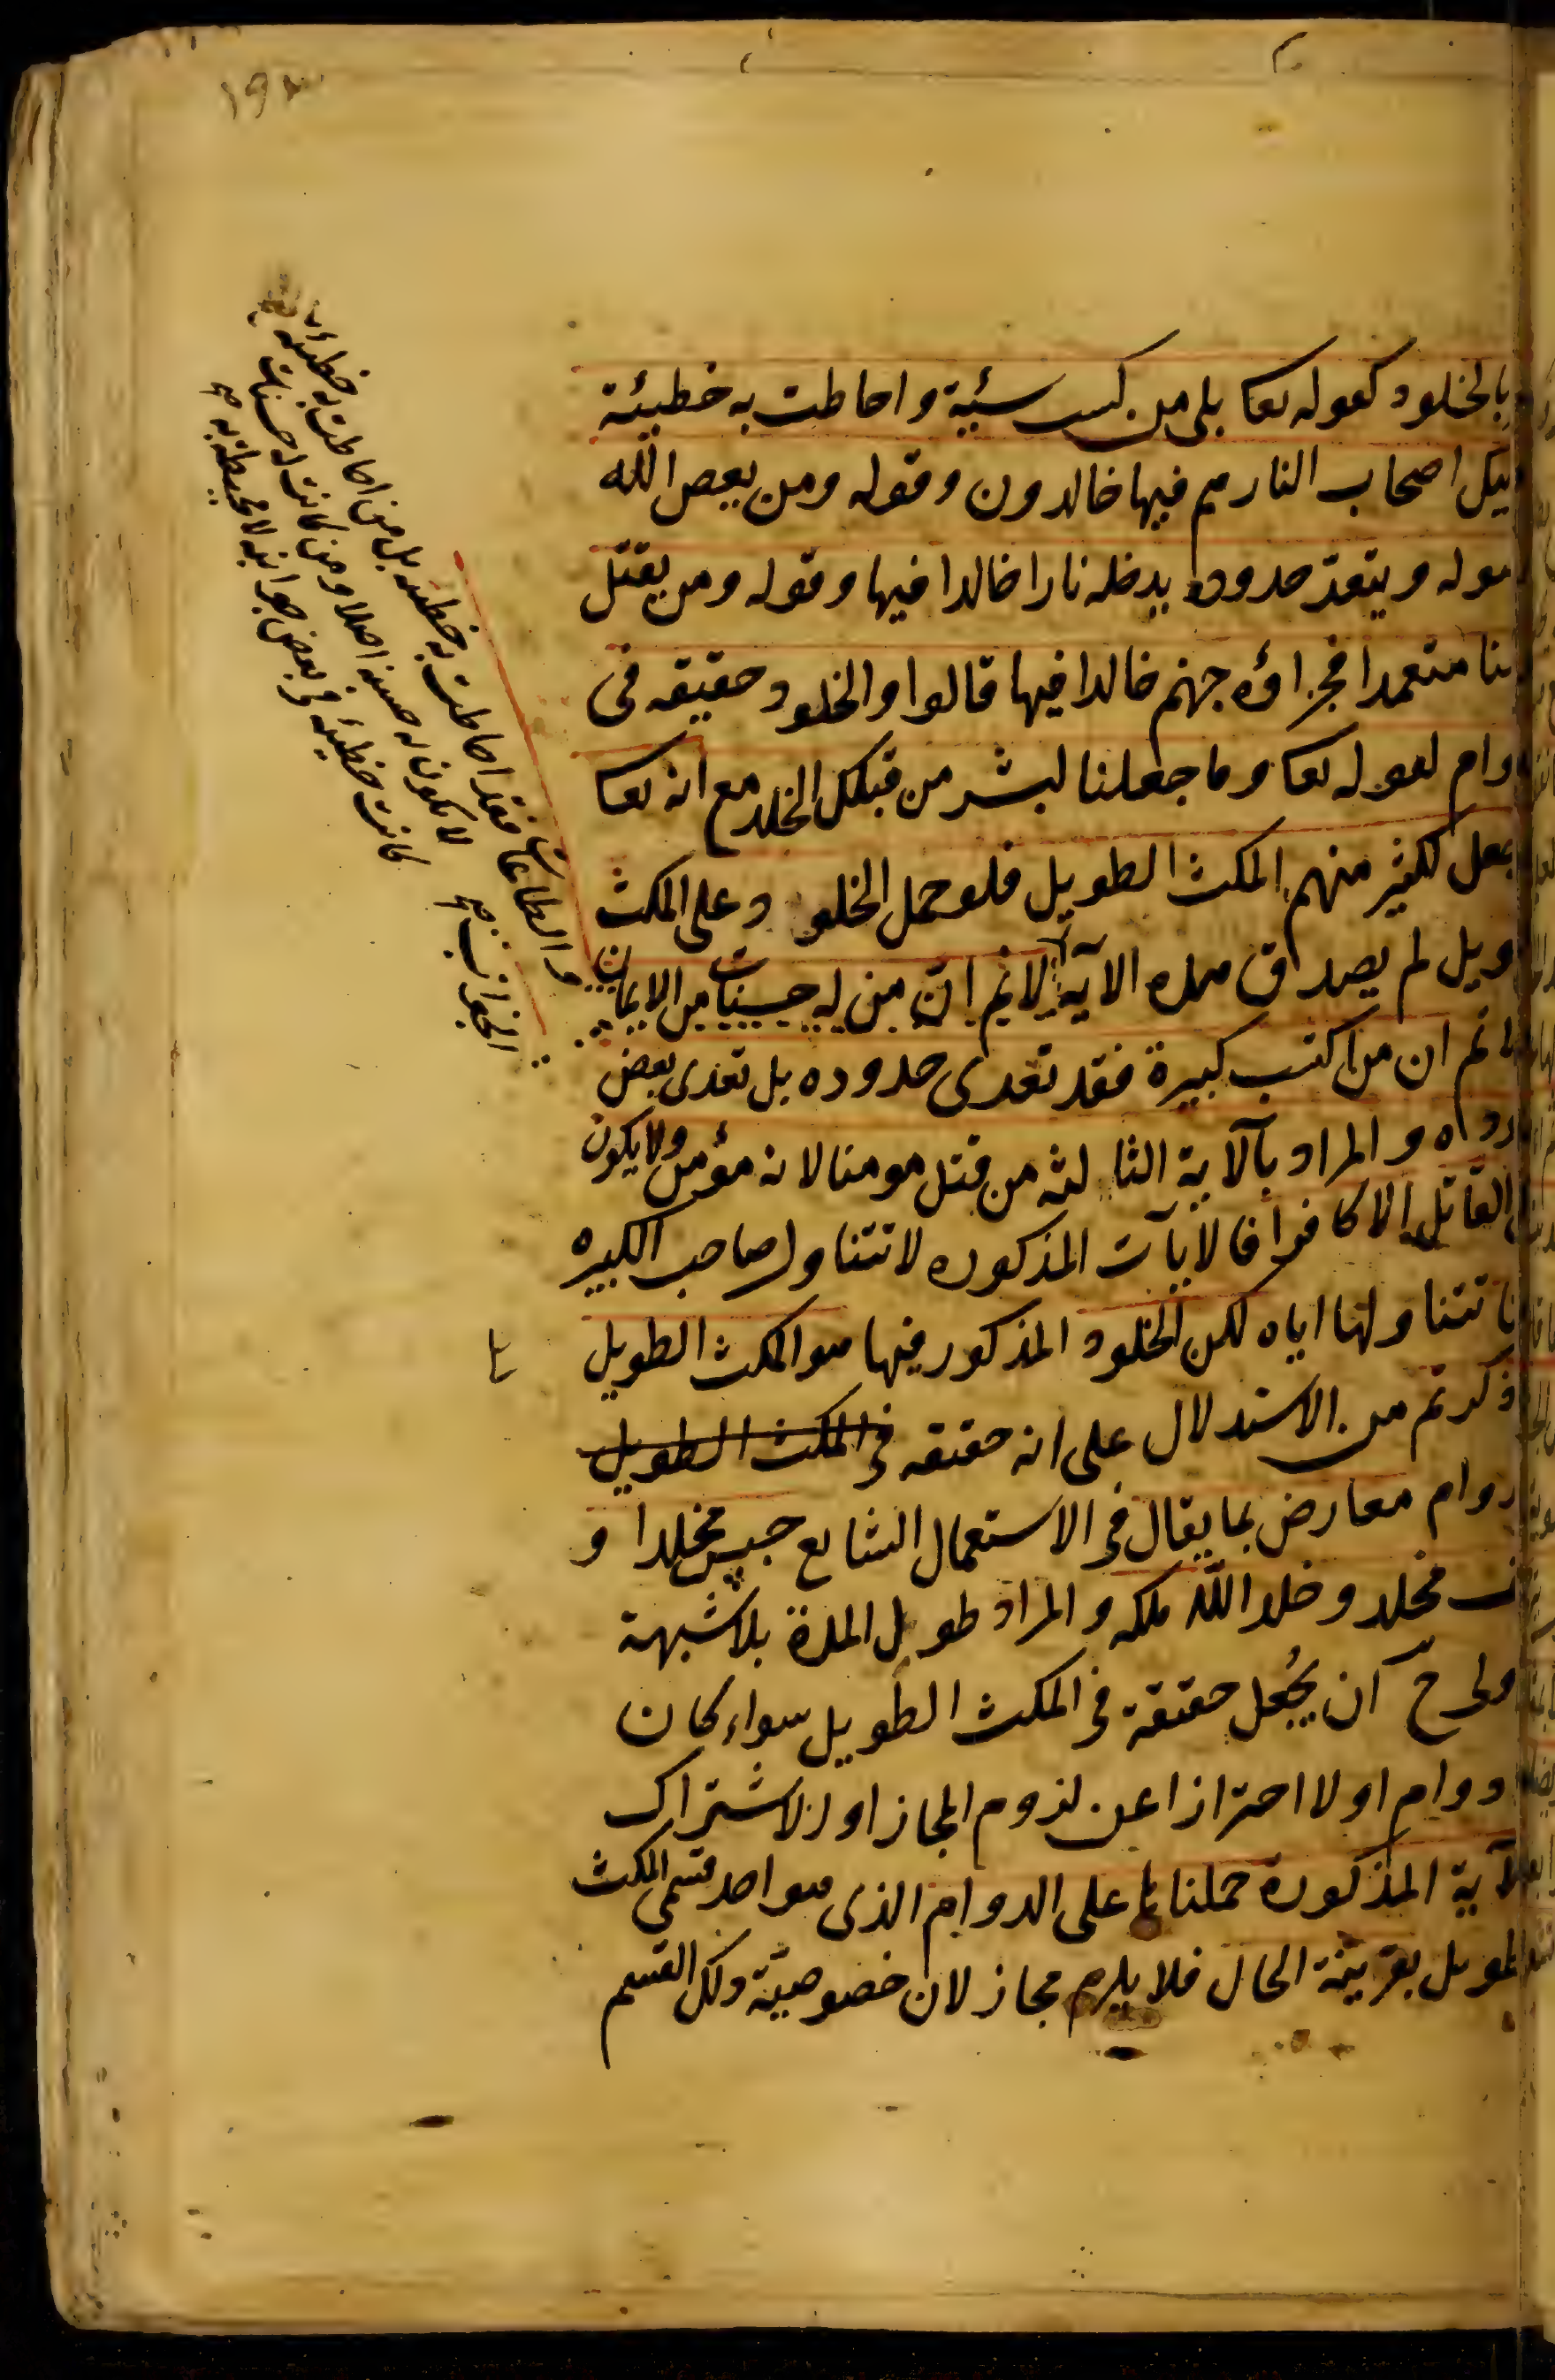 بالخلود كقوله تعا بلى من كسب سيئة واحاطت به خطيئة
ليك اصحاب النار هم فيها خالدون وقوله ومن يعص الله
سوله ويتعد حدوده يدخله نارا خالدا فيها وقوله ومن يقتل
منا متعمدا فجزاؤه جهنم خالدا فيها قالوا والخلود حقيقه فى
دوام لقوله تعا وما جعلنا لبشر من قبلك الخلد مع انه تعا
جعل لكثير منهم المكث الطويل فلو حمل الخلود على المكث
ويل لم يصدق هذه الآية لانم ان من له حسنات من الايمان
لانم ان من اكتسب كبيرة فقد تعدى حدوده بل تعدى بعض
دوده والمراد بآلاية الثالثه من قتل مومنا لانه مؤمن ولا يكون
القاتل الا كافرا فالايآت المذكوره لا تتناول صاحب الكبيره
نا تتناولها اياه لكن الخلود المذكور فيها هو المكث الطويل
ذكرتم من الاستدلال على انه حقيقه فى المكث الطويل
دوام معارض بما يقال فى الاستعمال الشايع حبس مخلدا و
ف مخلد وخلد الله ملكه والمراد طويل المدة بلا شبهة
ولى ح ان يجعل حقيقة فى المكث الطويل سواء كان
دوام اولا احترازا عن لزوم المجاز او الاشتراك
لآية المذكورة حملناها على الدوام الذى هو احد قسمى المكث
لطويل بقرينة الحال فلا يلزم مجاز لان خصوصية ذلك القسم
والطاعات فقد احاطت به خطيئته بل من احاطت به خطيئته
لا يكون له حسنة اصلا ومن كانت له حسنات
كانت خطيئته فى بعض جوانبه لا محيطة به صح
الجوانب صح